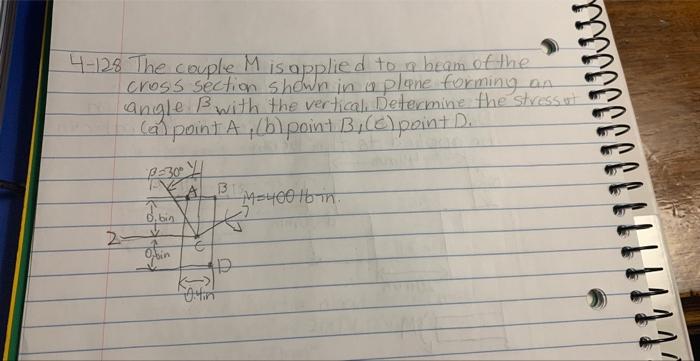 4-128 The couple M is applied to a beam of the
cross section shown in a plane forming an
angle β with the vertical. Determine the stress at
(a) point A, (b) point B, (c) point D.
β=30° y
A B M=400 lb·in.
0.6in
z C
0.6in
D
0.4in